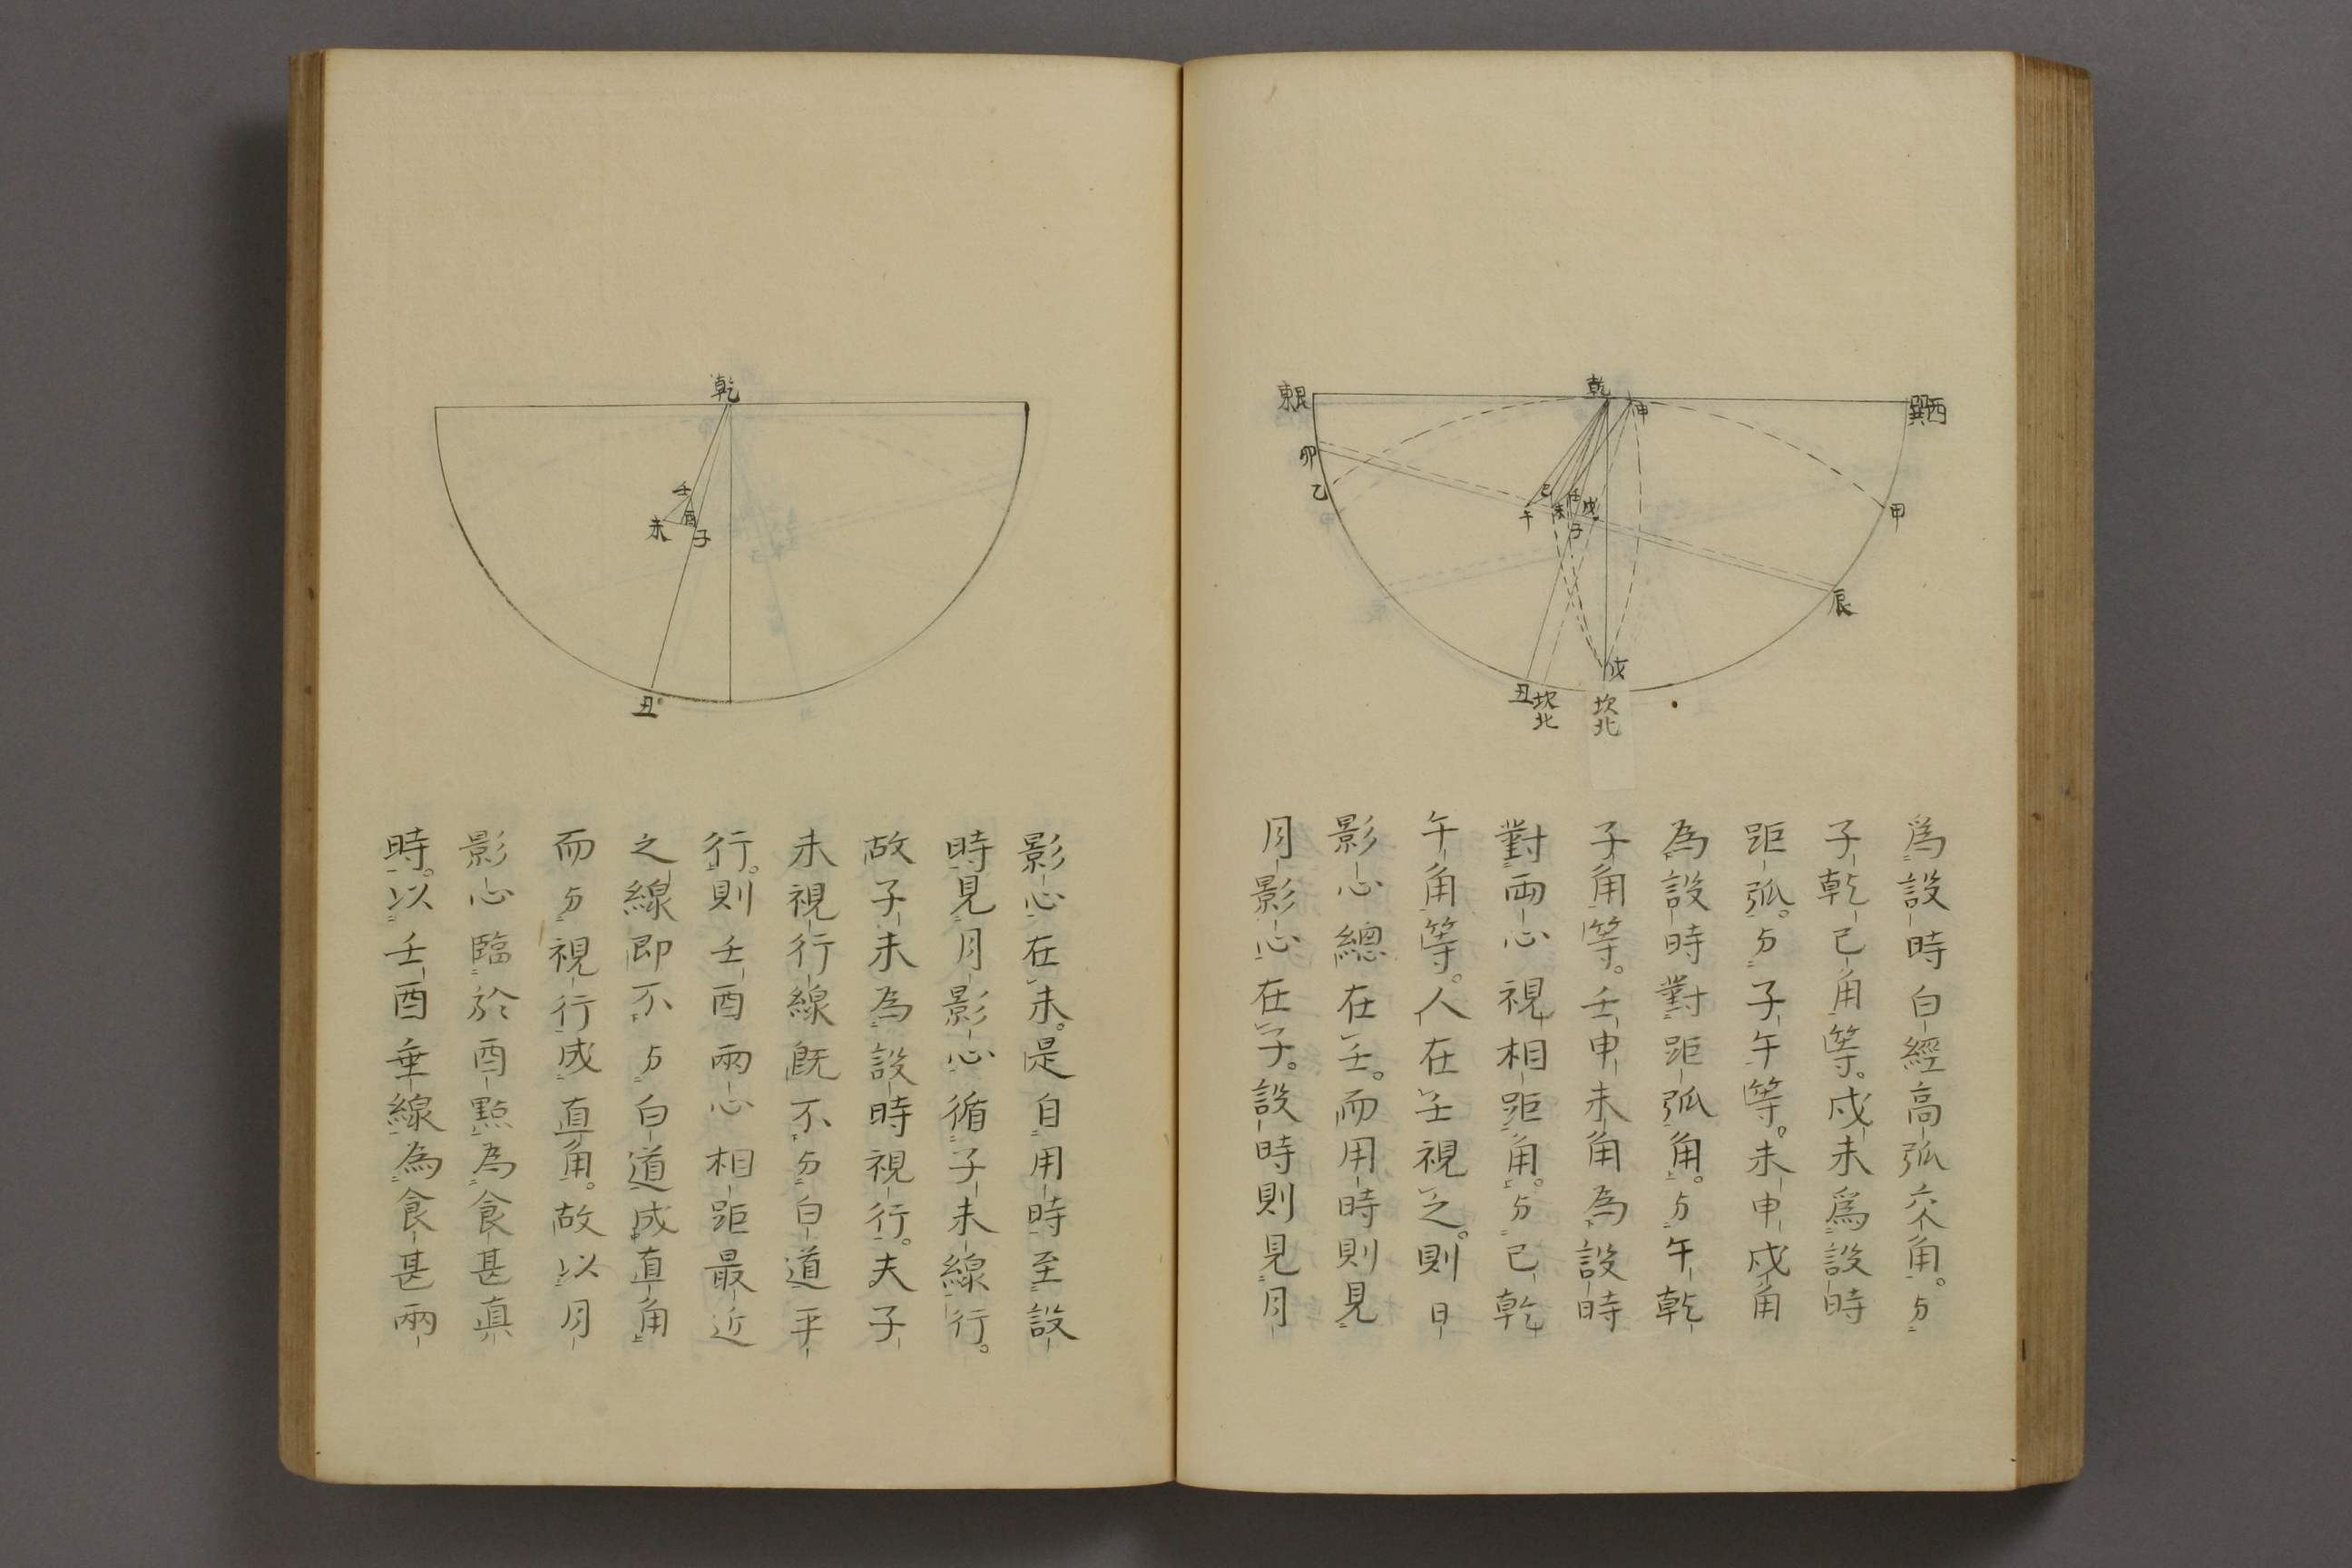 東艮
乾
申
巽西
卯
乙
甲
巳
午
未
壬
戌
子
辰
戊
丑
坎北
坎北
爲設時白經高弧交角。与
子乾巳角等。戌未爲設時
距弧。与子午等。未申戌角
為設時對距弧角。与午乾
子角等。壬申未角為設時
對両心視相距角。与巳乾
午角等。人在壬視之。則日
影心總在壬。而用時則見
月影心在子。設時則見月
乾
壬
未
酉
子
丑
影心在未。是自用時至設
時見月影心循子未線行。
故子未為設時視行。夫子
未視行線既不与白道平
行。則壬酉兩心相距最近
之線即不与白道成直角
而与視行成直角。故以月
影心臨於酉點為食甚真
時。以壬酉垂線為食甚兩